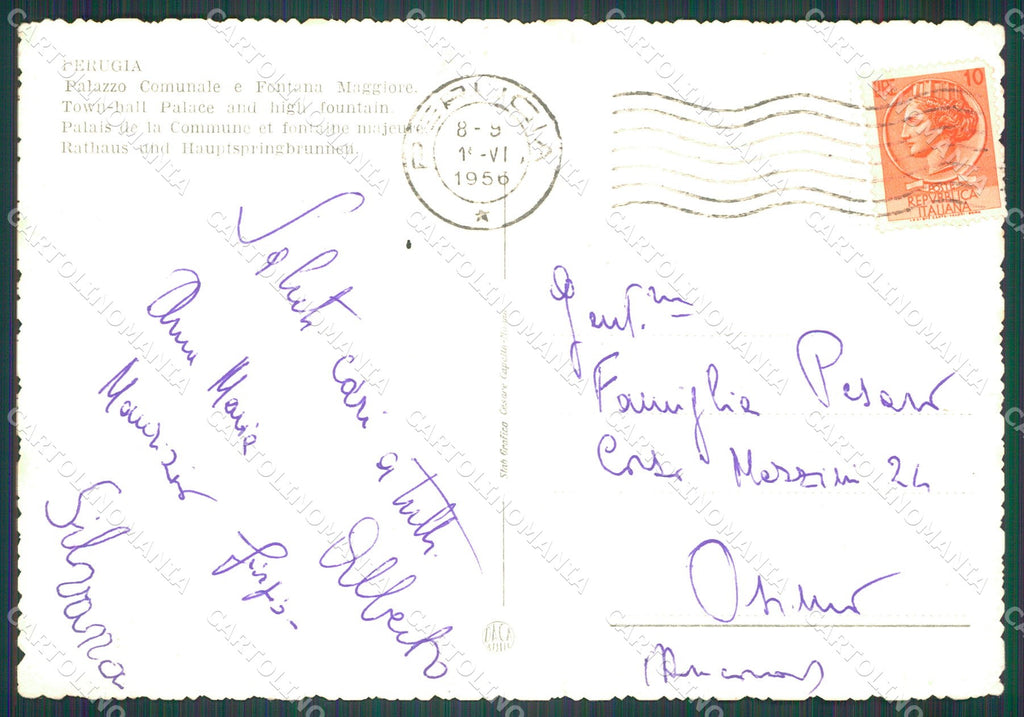 PERUGIA
Palazzo Comunale e Fontana Maggiore.
Town-hall Palace and high fountain.
Palais de la Commune et fontaine majeure.
Rathaus und Hauptspringbrunnen.
PERUGIA
8-9
1-VI
1956
10
LIRE
POSTE
REPVBBLICA
ITALIANA
Saluti cari a tutti
Alberto
Anna Maria
Maurizio
Giorgio
Silvana
Gent.ma
Famiglia Pesaro
Corso Mazzini 24
Osimo
(Ancona)
CARTOLINOMANIA